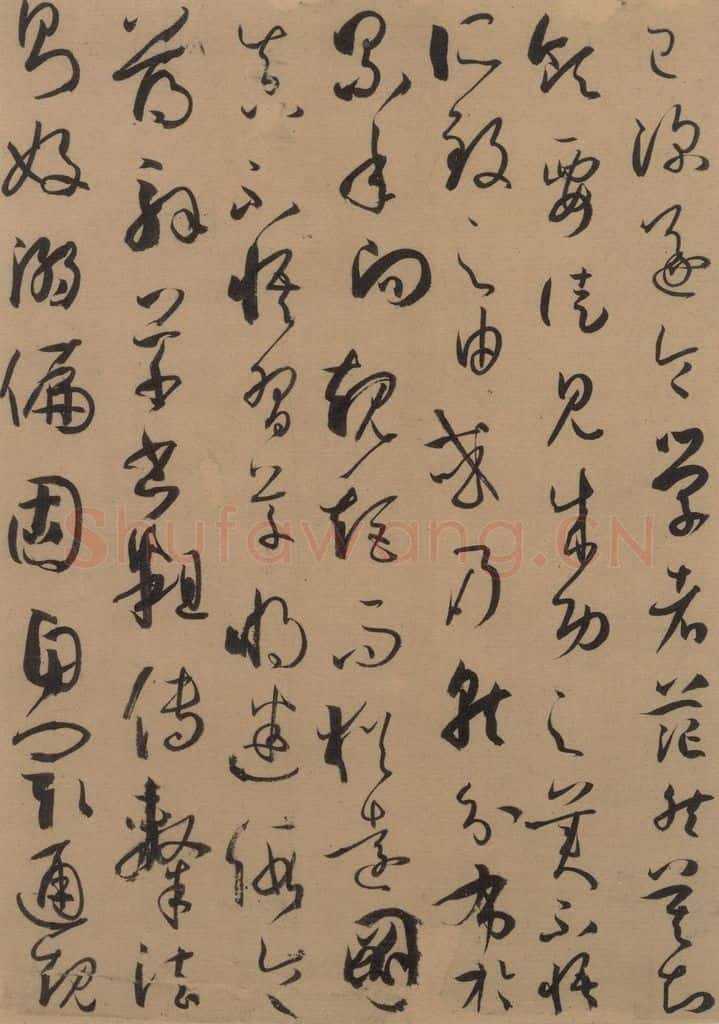 已深遂令學者茫然莫知
領要徒見成功之美不悟
所致之由或乃就分布於
累年向規矩而猶遠圖
真不悟習草將迷假令
薄解草書粗傳隸法
則好溺偏固自閡通規
Shufawang.CN